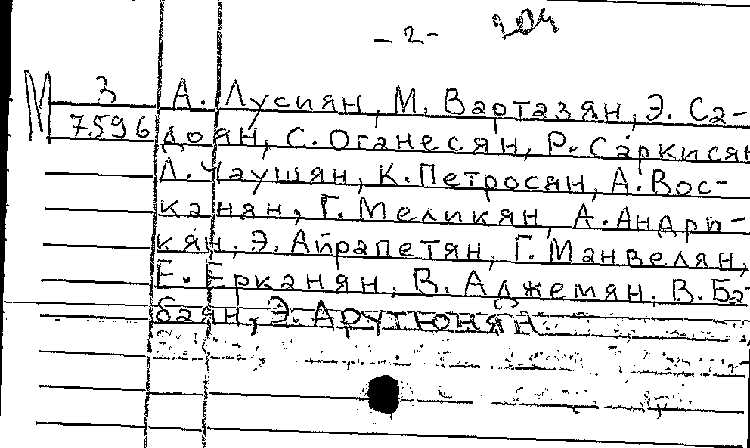 -2- 304
М 3 А. Лусиян, М. Вартазян, Э. Са-
7596 доян, С. Оганесян, Р. Саркисян
Л. Чаушян, К. Петросян, А. Вос-
канян, Г. Меликян, А. Андри-
кян, Э. Айрапетян, Г. Манвелян,
Е. Ерканян, В. Аджемян, В. Ба
баян, Э. Арутюнян